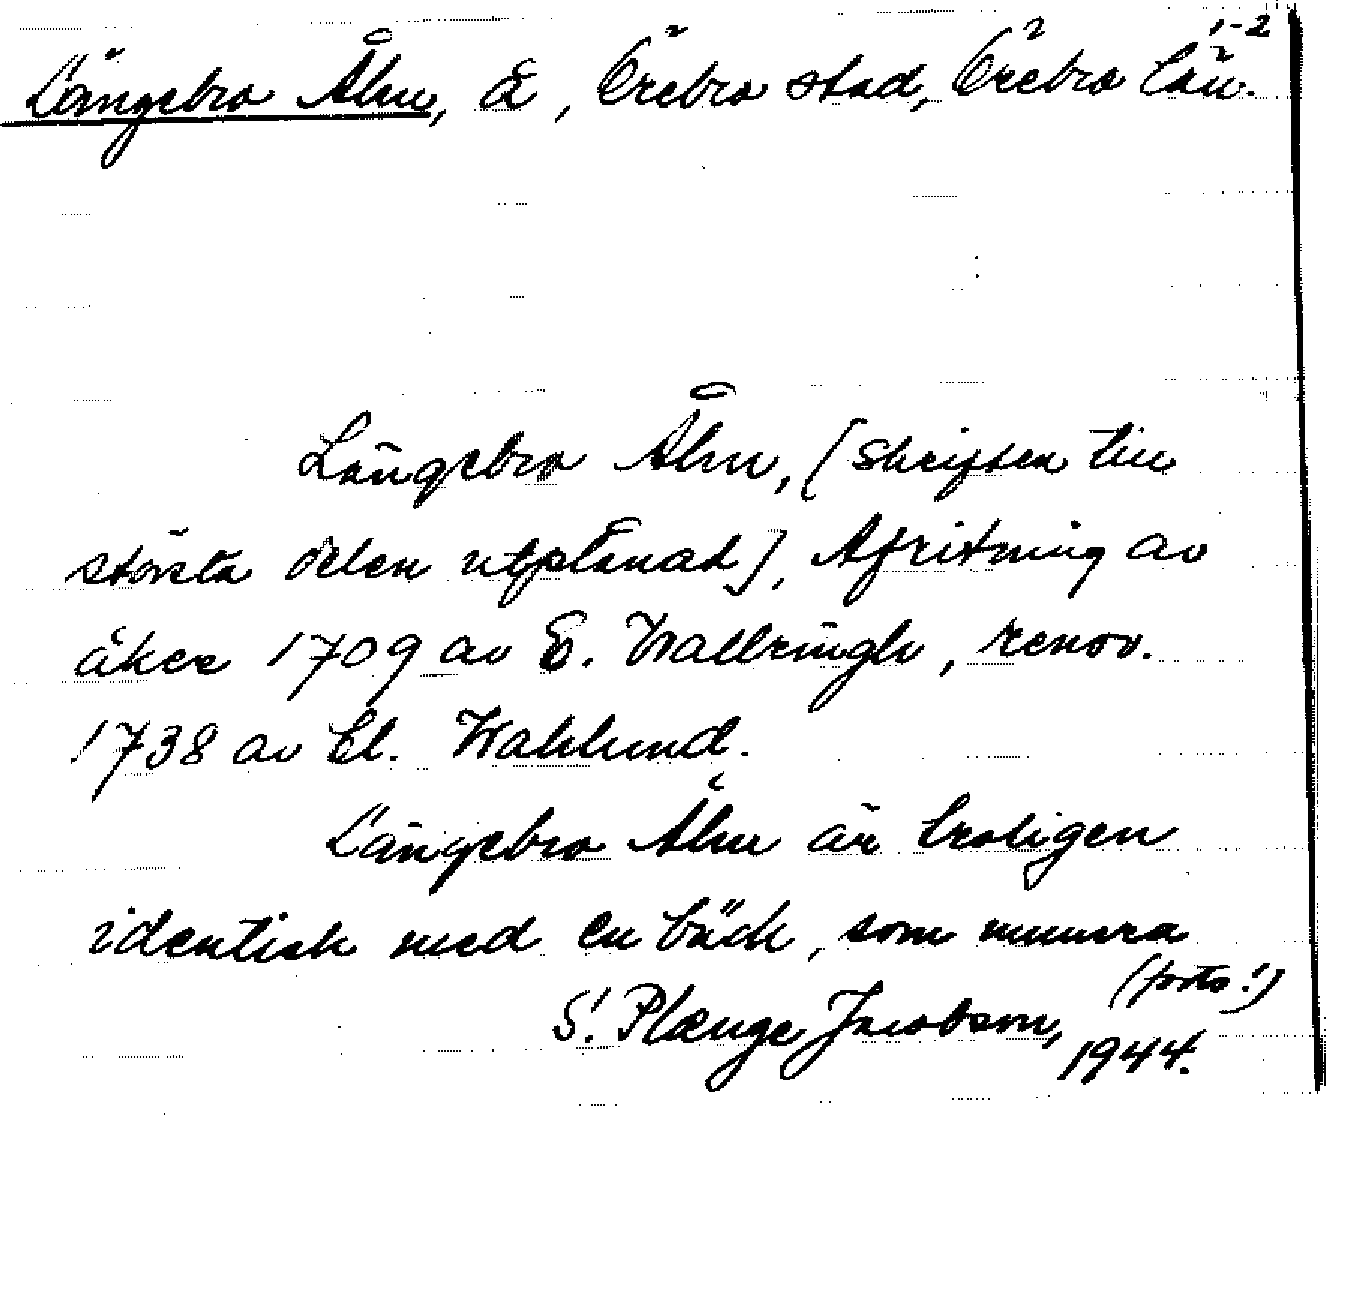 1-2
Längebro Åhn, å, Örebro stad, Örebro län.
Längebro Åhn, (skriften till
största delen utplånad), Afritning av
åker 1709 av E. Wallringh, renov.
1738 av El. Wahlund.
Längebro Åhn är troligen
identisk med en bäck, som numera
(forts.!)
S. Plænge Jacobson,
1944.